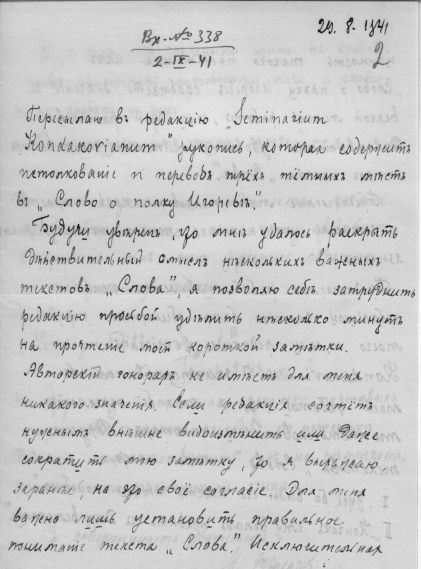 29. 8. 1941
Вх.-№ 338
2-IX-41
2
Пересылаю въ редакцію „Seminarium
Kondakovianum" рукопись, которая содержитъ
истолкованіе и переводъ трёхъ тёмныхъ мѣстъ
въ „Слово о полку Игоревѣ".
Будучи увѣренъ, что мнѣ удалось раскрыть
дѣйствительный смыслъ нѣсколькихъ важныхъ
текстовъ „Слова", я позволяю себѣ затруднить
редакцію просьбой удѣлить нѣсколько минутъ
на прочтеніе моей короткой замѣтки.
Авторскій гонораръ не имѣетъ для меня
никакого значенія. Если редакція сочтётъ
нужнымъ внѣшне видоизмѣнить или даже
сократить мою замѣтку, то я выражаю,
заранѣе, на это своё согласіе. Для меня
важно лишь установить правильное
пониманіе текста „Слова". Исключительная